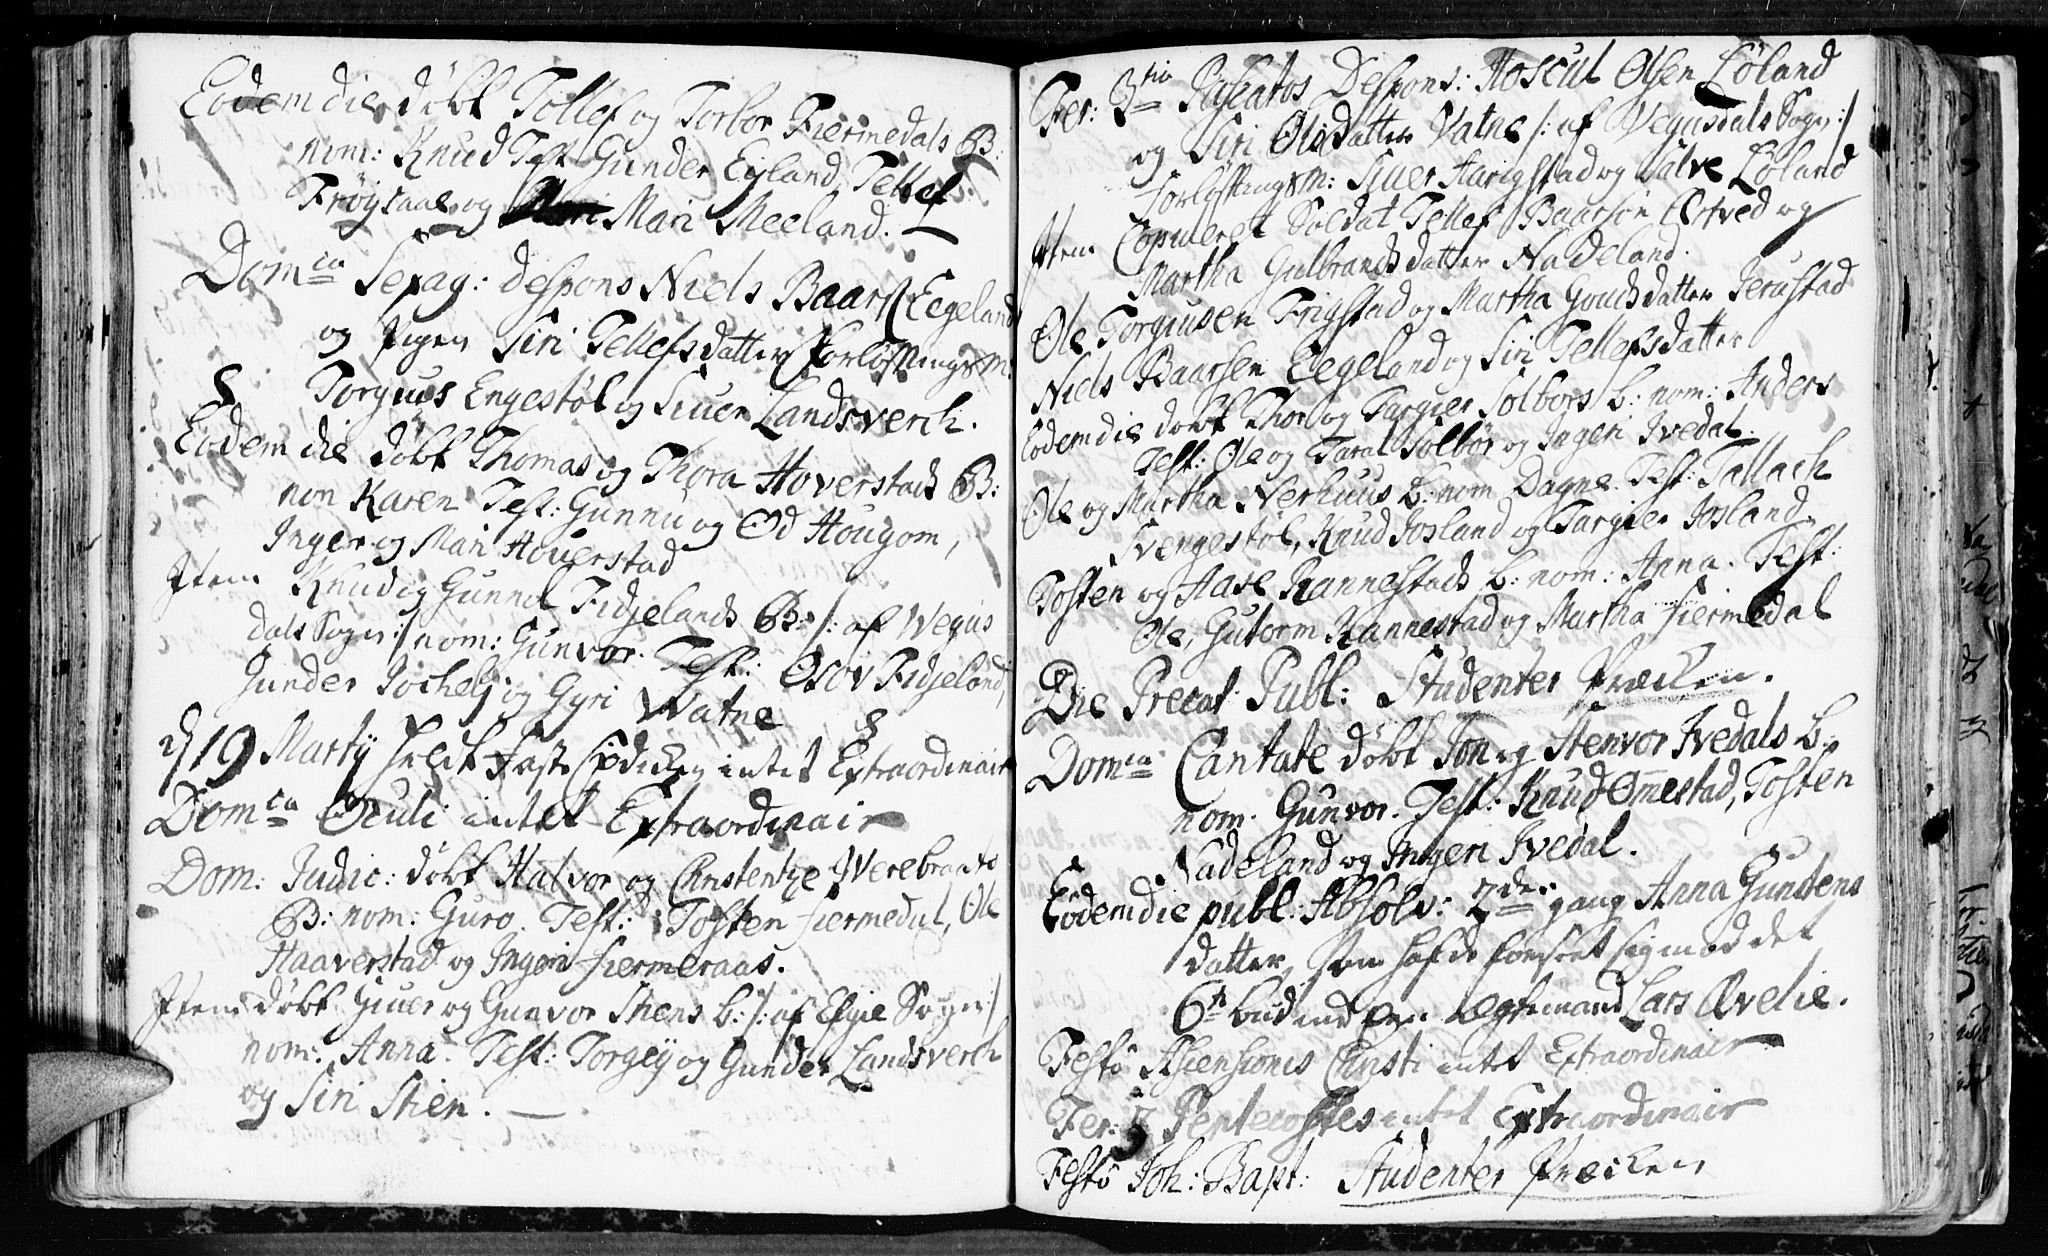 Eodem die døbt Tollef og Torbor Fiermedals B:
nom: Knud Test Gunder Eyland, Tellef
Frøysaae og Mari Meeland.
Dom^ca Sexag: Despons Niels Baars: Eegeland
og Pigen Siri Tellefsdatter Forløftnings m:
Torgiuus Engestøl og Siuer Landsverch.
Eodem die døbt Thomas og Thora Hoverstads B:
nom Karen Test: Gunnu og Od Hougom,
Inger og Mari Hoverstad
Item Knud og Gunnil Fidjelands B: /: af Wegus
dals Sogn :/ nom: Gunvor. Test: Osov Fidjeland,
Gunder Jochelj og Gyri Watne
d 19 Martij holdt Faste Prædicken intet Extraordinair
Dom^ca Oculi intet Extraordinair
Dom: Judic: døbt Halvor og Christentze Werebraats
B: nom: Guro. Test: Tosten Fiermedal, Ole
Haaverstad og Ingeri Fiermeraas.
Item døbt Giuer og Gunvor Stiens b: /: af Efgie Sogn :/
nom: Anna. Test: Torgey og Gunder Landsverch
og Siri Stien.
Fer: 3^tia Paschatos Despons: Aoscul Olsen Løland
og Siri Olsdatter Vatne /: af Vegusdals Sogn :/
Forløftnings m: Siuer Harigstad og Salve Løland
Item Copuleret Soldat Tellef Baarsøn Ørtved og
Martha Gulbrandsdatter Nadeland.
Ole Torgiusen Frigstad og Martha Goudsdatter Jerustad
Niels Baarsen Eegeland og Siri Tellefsdatter
Eodem die døbt Thor og Targier Solbors b: nom: Anders
Test: Ole og Taral Solbør og Ingeri Ivedal.
Ole og Martha Nerhuus b: nom Dagne. Test: Tallach
Svengestøl, Knud Josland og Targier Josland.
Tosten og Aase Rannestads b: nom: Anna. Test:
Ole, Gutorm Rannestad og Martha Fiermedal
Die Precat: Publ: Studenter Præcken.
Dom^ca Cantate døbt Jon og Stenvor Ivedals b:
nom: Gunvor. Test: Knud Ommestad, Tosten
Nadeland og Ingeri Ivedal.
Eodem die publ: Absolv: 2^de gang Anna Gunstens
datter, som hafde forseet sig mod det
6^te bud med en Ægtemand Lars Øvelie.
Festo Ascensionis Christi intet Extraordinair
Fer: 3 Pentecostes intet Extraordinair
Festo Joh: Bapt: Studenter Præcken